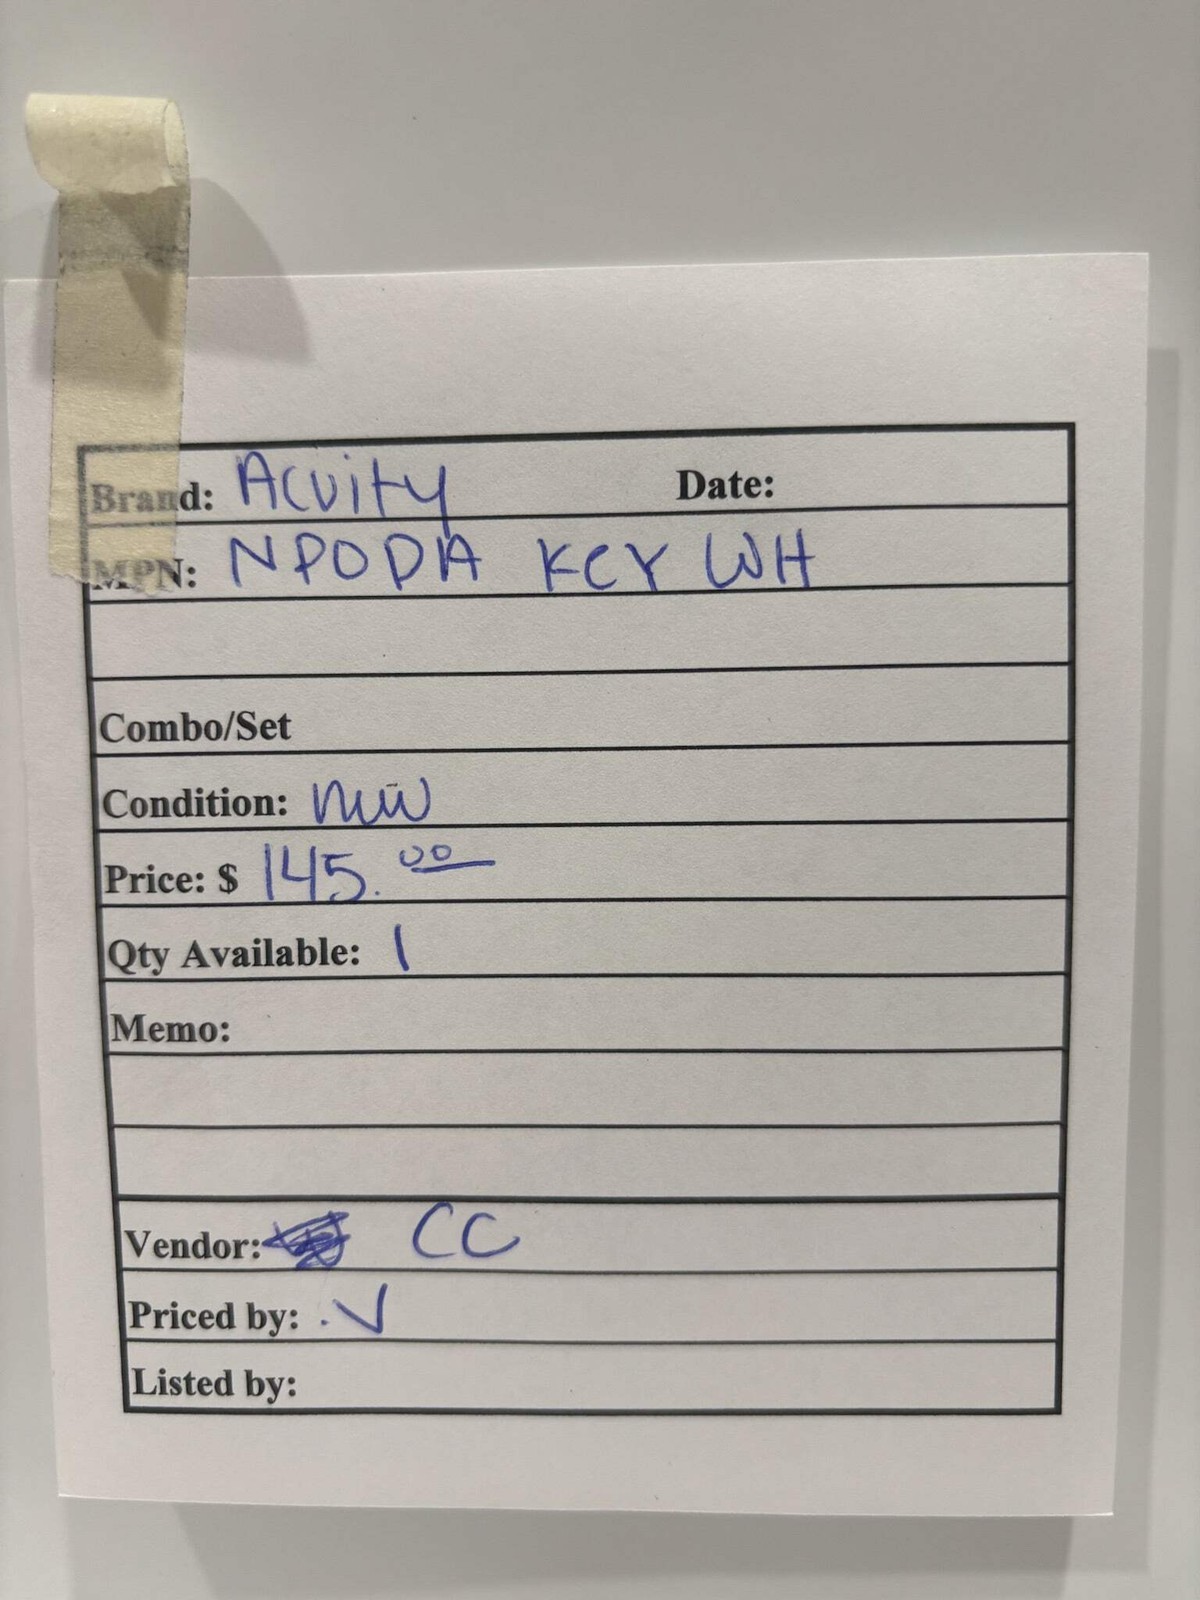 Brand: Acuity Date:
MPN: NPODA KEY WH
Combo/Set
Condition: new
Price: $ 145.00
Qty Available: 1
Memo:
Vendor: CC
Priced by: .V
Listed by: